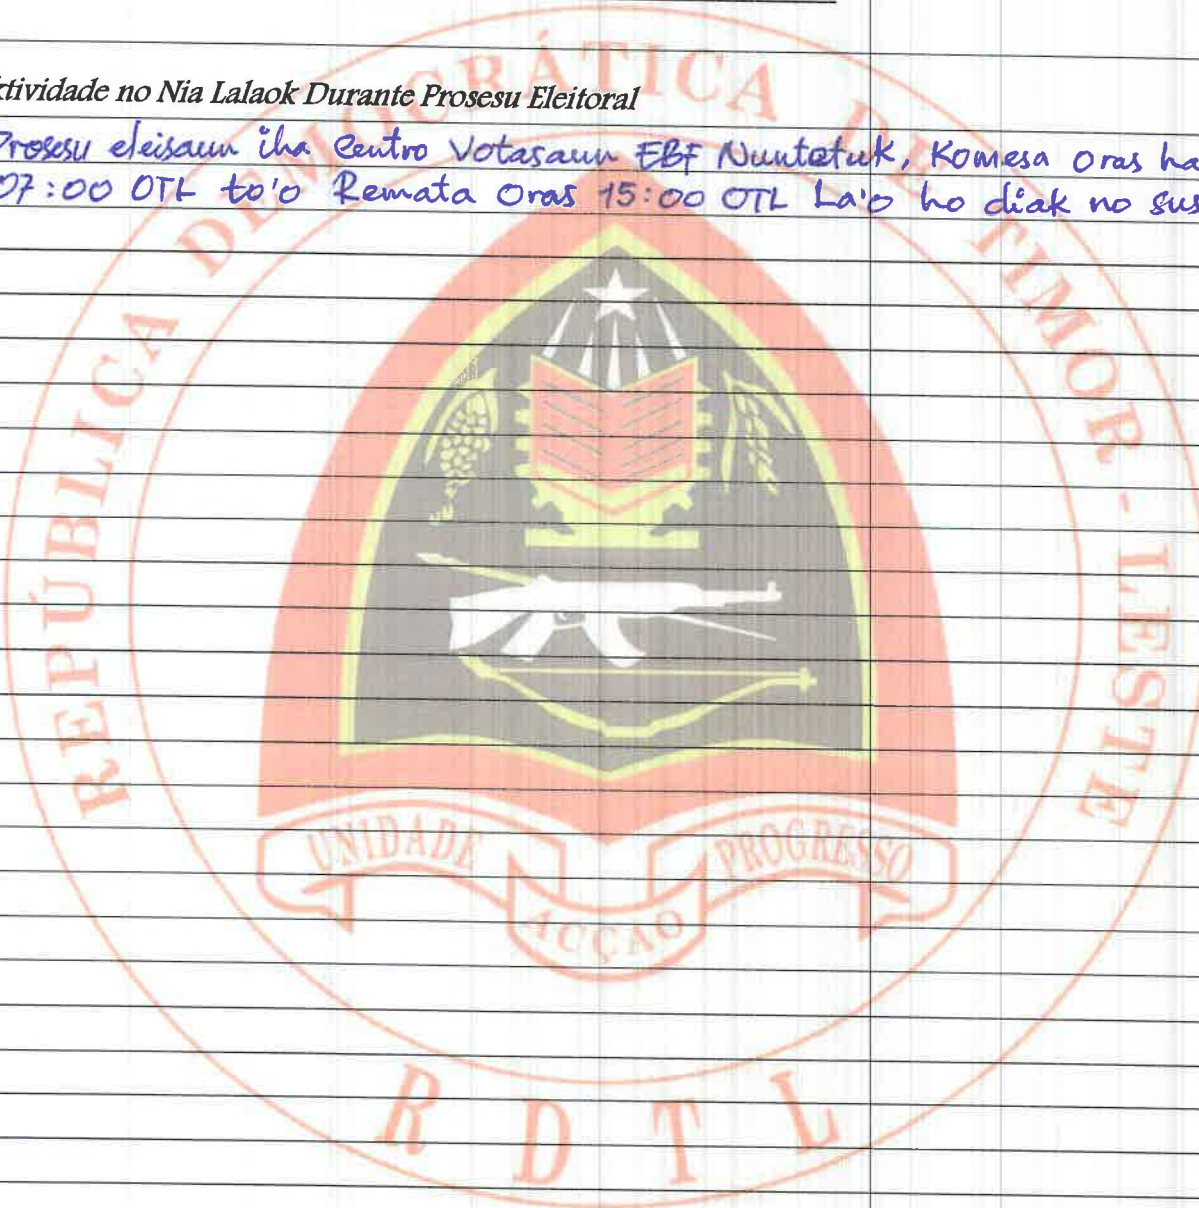 ktividade no Nia Lalaok Durante Prosesu Eleitoral
Prosesu eleisaun iha Centro Votasaun EBF Nuntetuk, Komesa oras ha
07:00 OTL to'o Remata Oras 15:00 OTL La'o ho diak no sus
REPÚBLICA DEMOCRÁTICA DE TIMOR-LESTE
UNIDADE ACÇÃO PROGRESSO
RDTL